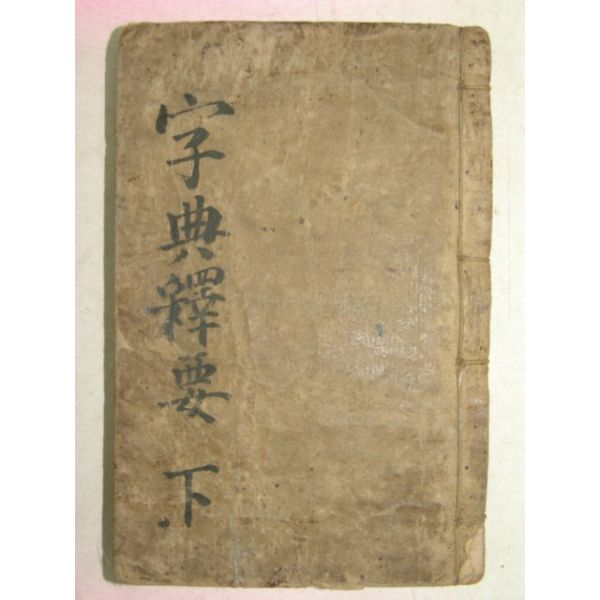 字典釋要 下